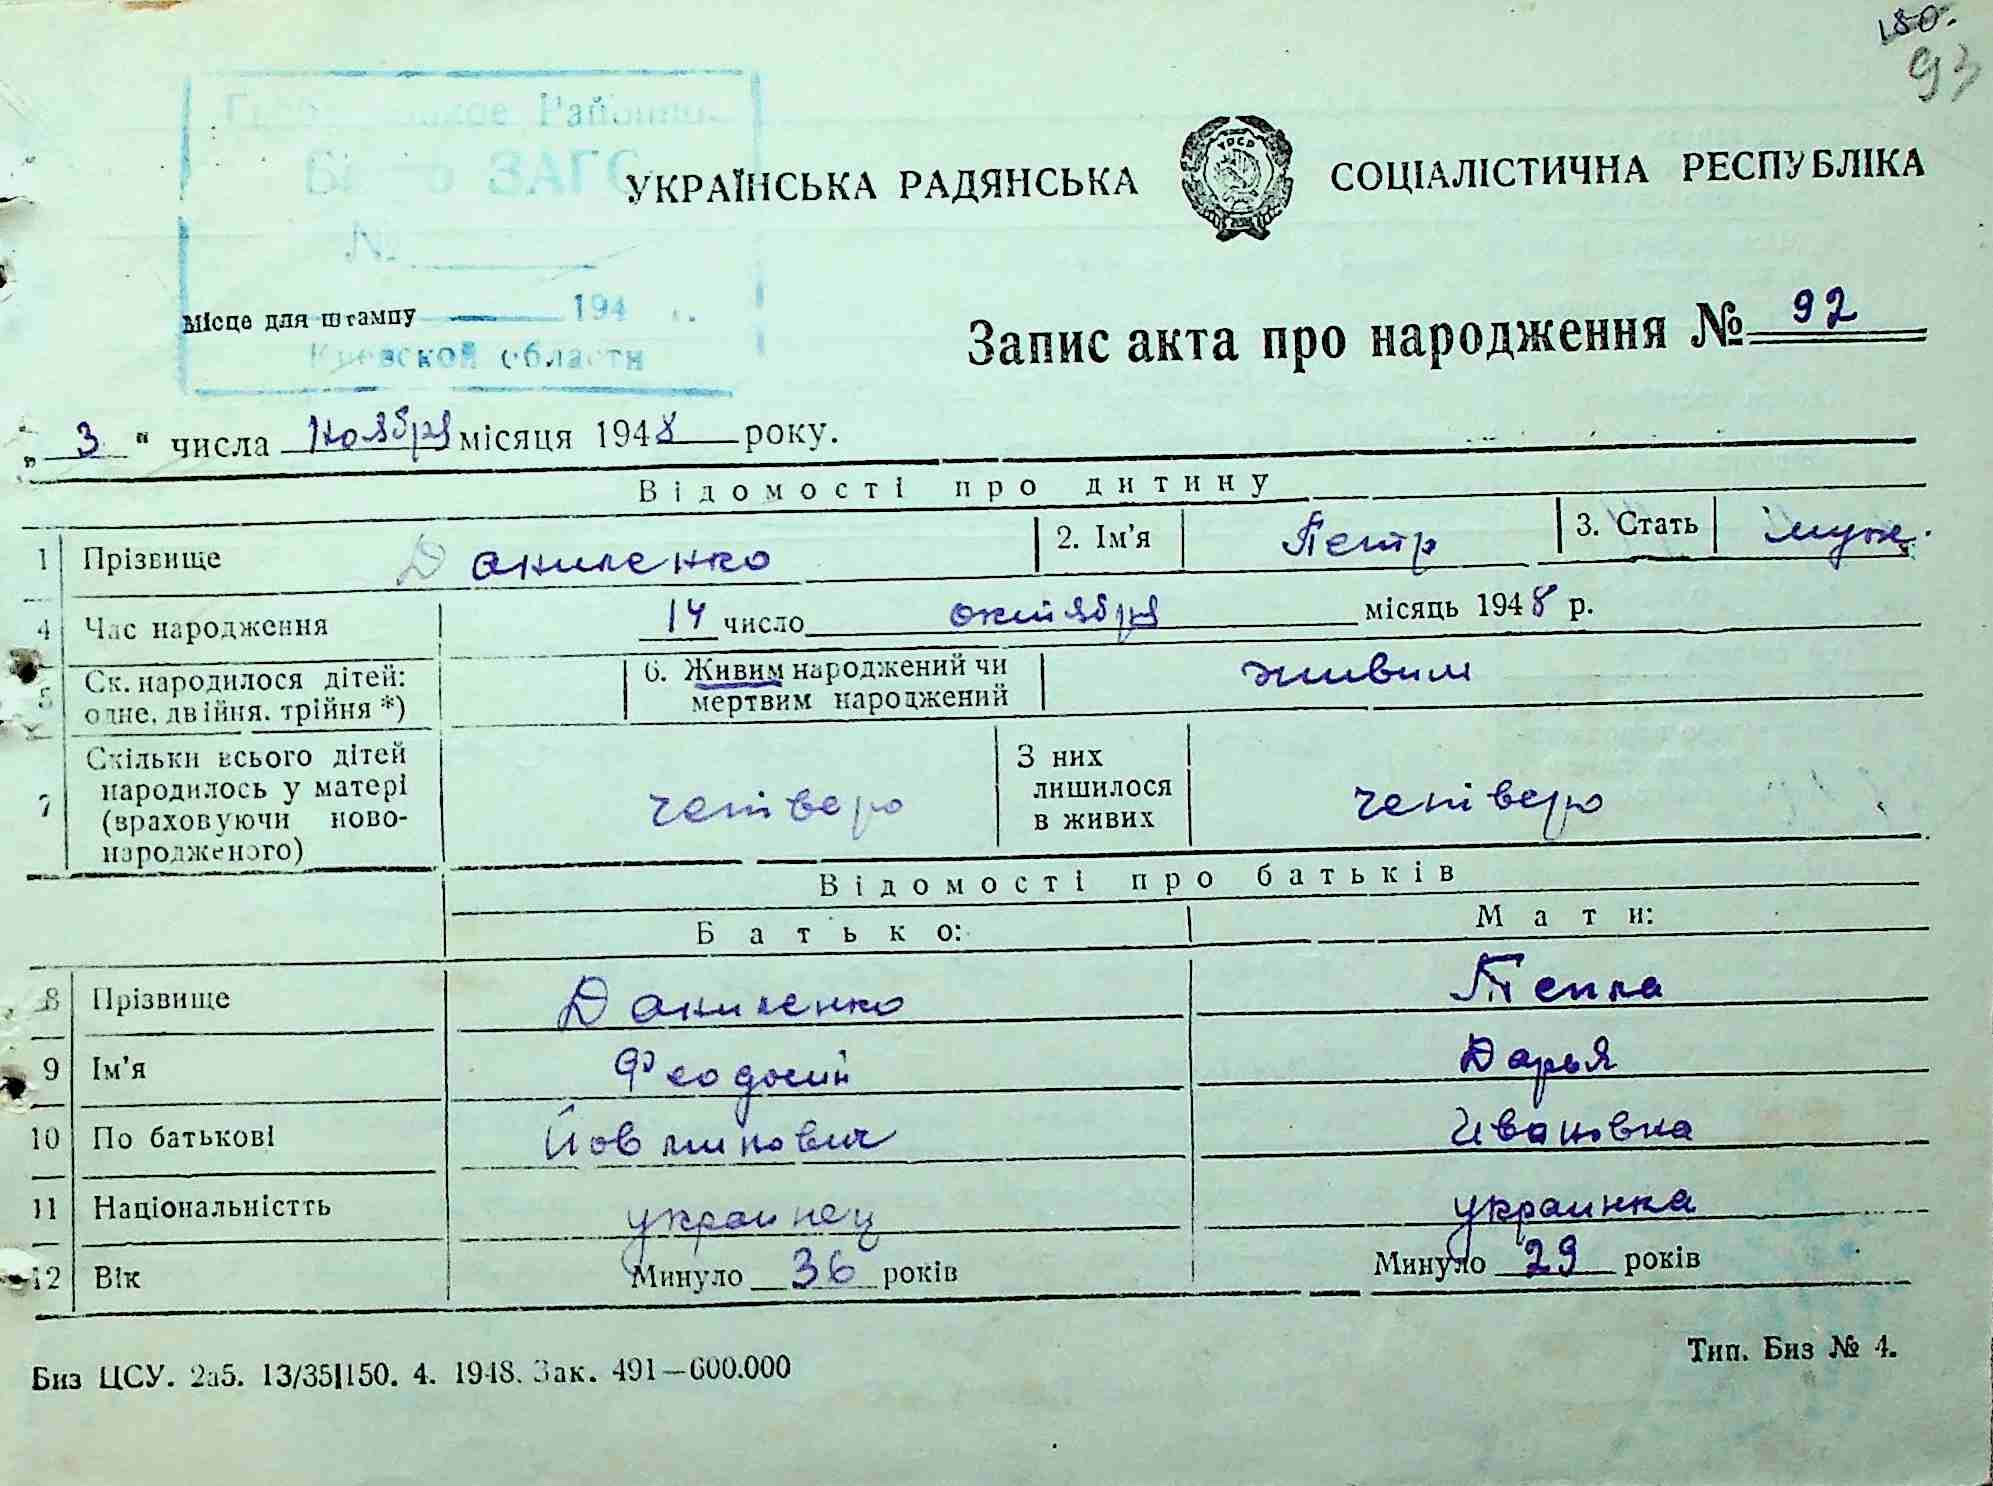 180.
93
Районное
Бюро ЗАГС
УКРАЇНСЬКА РАДЯНСЬКА СОЦІАЛІСТИЧНА РЕСПУБЛІКА
УРСР
№
Місце для штампу 194 г.
Киевской области
Запис акта про народження № 92
„ 3 “ числа Ноября місяця 1948 року.
Відомості про дитину
1 Прізвище Даниленко 2. Ім'я Петр 3. Стать муж.
4 Час народження 14 число октября місяць 1948 р.
5 Ск. народилося дітей: одне, двійня, трійня *) 6. Живим народжений чи мертвим народжений живим
7 Скільки всього дітей народилось у матері (враховуючи новонародженого) четверо З них лишилося в живих четверо
Відомості про батьків
Батько: Мати:
8 Прізвище Даниленко Тепла
9 Ім'я Феодосий Дарья
10 По батькові Ивановна
11 Національністть украинец украинка
12 Вік Минуло 36 років Минуло 29 років
Биз ЦСУ. 2а5. 13/35|150. 4. 1948. Зак. 491—600.000 Тип. Биз № 4.